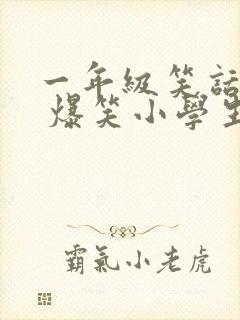 一年級笑話
爆笑小學生
霸氣小老虎